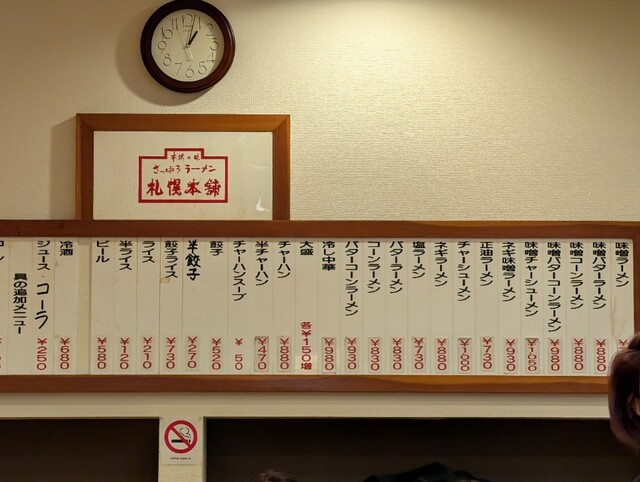 本場の味
さっぽろラーメン
札幌本舗
味噌ラーメン
味噌バターラーメン ¥880
味噌コーンラーメン ¥880
味噌バターコーンラーメン ¥980
味噌チャーシューメン ¥1050
ネギ味噌ラーメン ¥930
正油ラーメン ¥730
チャーシューメン ¥1000
ネギラーメン ¥880
塩ラーメン ¥730
バターラーメン ¥830
コーンラーメン ¥830
バターコーンラーメン ¥930
冷し中華 ¥980
大盛 各¥150増
チャーハン ¥880
半チャーハン ¥470
チャーハンスープ ¥50
餃子 ¥520
半餃子 ¥270
餃子ライス ¥730
ライス ¥210
半ライス ¥120
ビール ¥580
冷酒 ¥680
ジュース・コーラ ¥250
具の追加メニュー